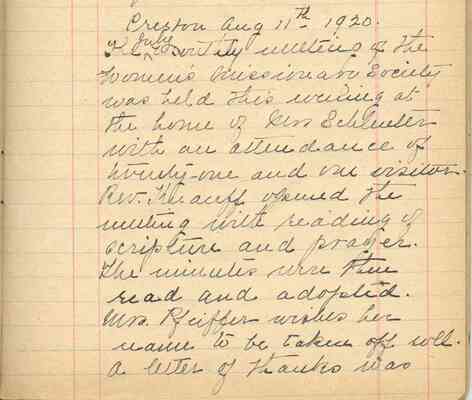 Preston Aug 11th 1920.
The July Montly meeting of the
Women's Missionary Society
was held this evening at
the home of Mrs Schlueter
with an attendance of
twenty-one and one visitor.
Rev. Knauff opened the
meeting with reading of
scripture and prayer.
The minutes were then
read and adopted.
Mrs. Pfeiffer wishes her
name to be taken off roll.
A letter of thanks was